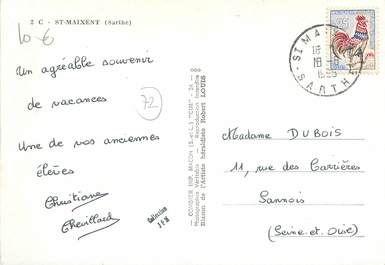 2 C - ST-MAIXENT (Sarthe)
10 €
Un agréable souvenir
de vacances
72
Une de vos anciennes
élèves
Christiane
Chevillard
Collection
COMBIER IMP. MACON (S.-et-L.) "CIM"
Photographie Véritable - Reproduction Interdite
Blason de l'Artiste héraldiste Robert LOUIS
ST MA
18
SARTHE
Madame DUBOIS
11, rue des Carrières
Sannois
(Seine-et-Oise)